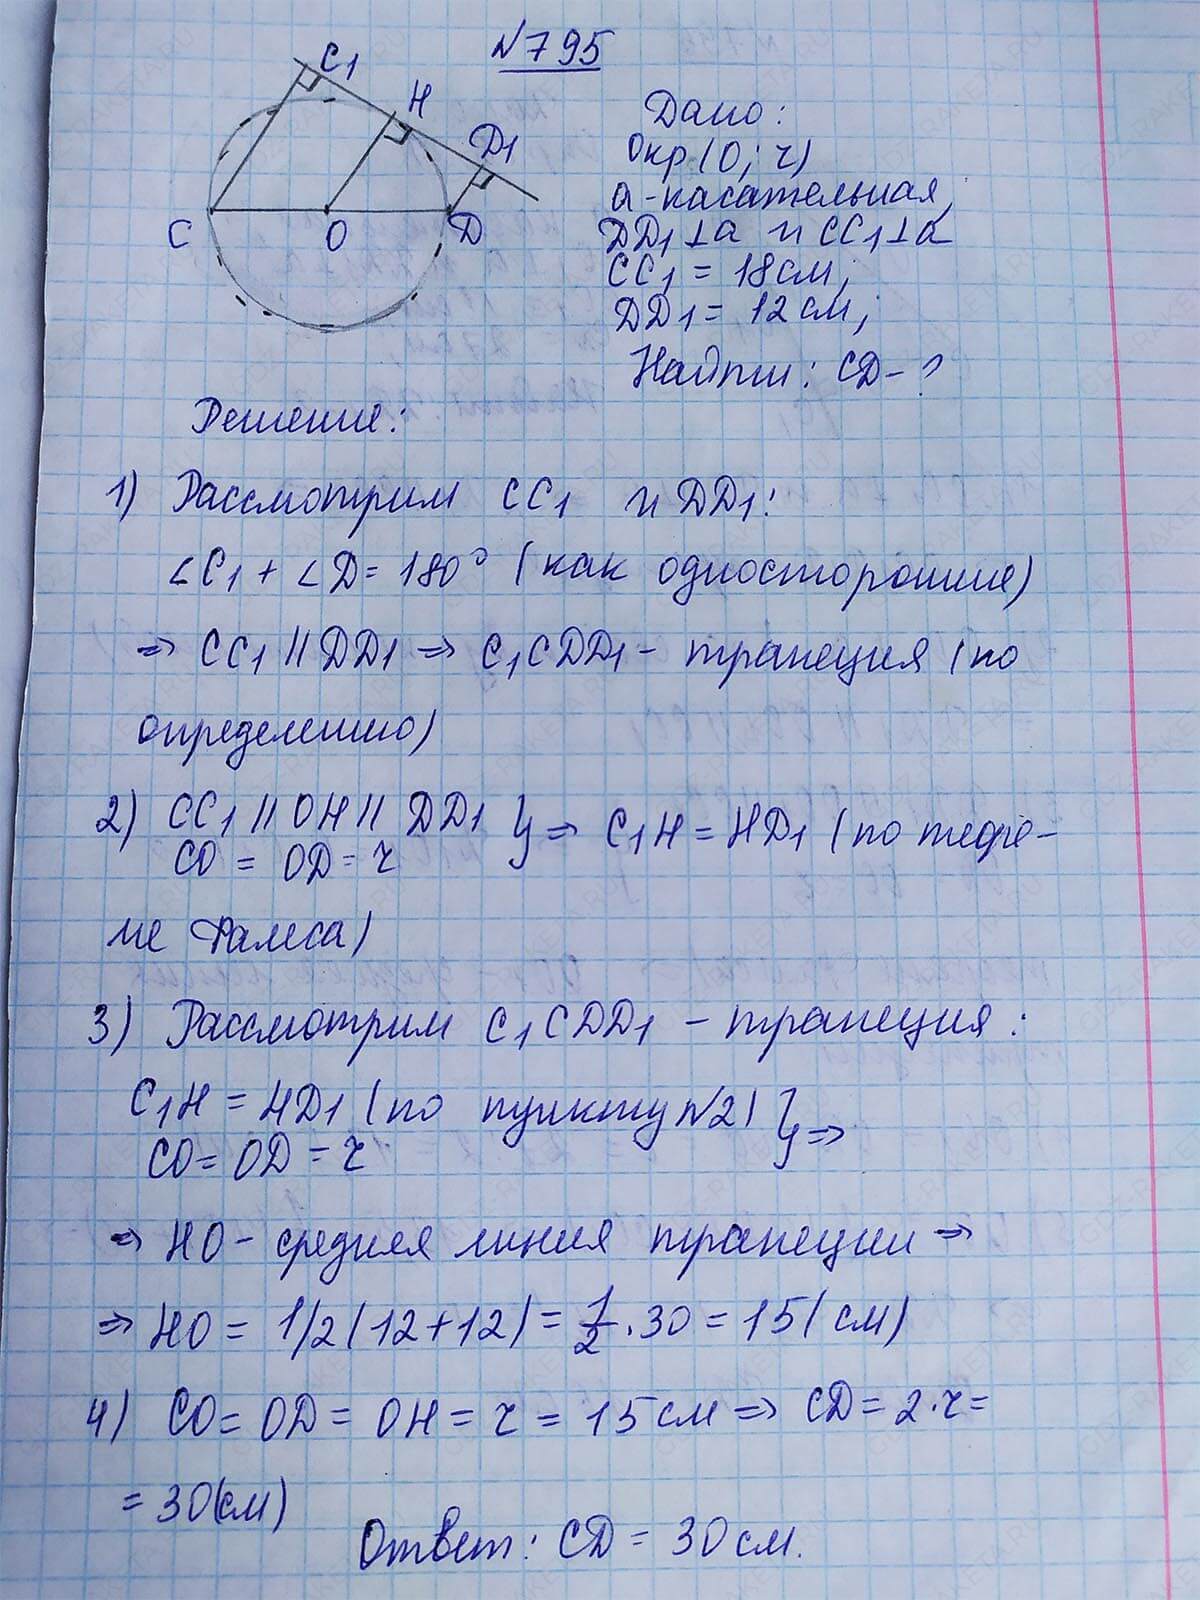 №795
C1
H
D1
C
O
D
Дано:
Окр(O; r)
a-касательная,
DD1⊥a и CC1⊥a
CC1 = 18см;
DD1 = 12см;
Найти: CD-?
Решение:
1) Рассмотрим CC1 и DD1:
∠C1+∠D=180° (как односторонние)
⇒ CC1 || DD1 ⇒ C1CDD1 - трапеция (по
определению)
2) CC1 || OH || DD1 } ⇒ C1H = HD1 (по теоре-
CO = OD = r
ме Фалеса)
3) Рассмотрим C1CDD1 - трапеция:
C1H = HD1 (по пункту №2) } ⇒
CO = OD = r
⇒ HO - средняя линия трапеции ⇒
⇒ HO = 1/2(12+12) = 1/2 · 30 = 15(см)
4) CO = OD = OH = r = 15см ⇒ CD = 2·r =
= 30(см)
Ответ: CD = 30см.